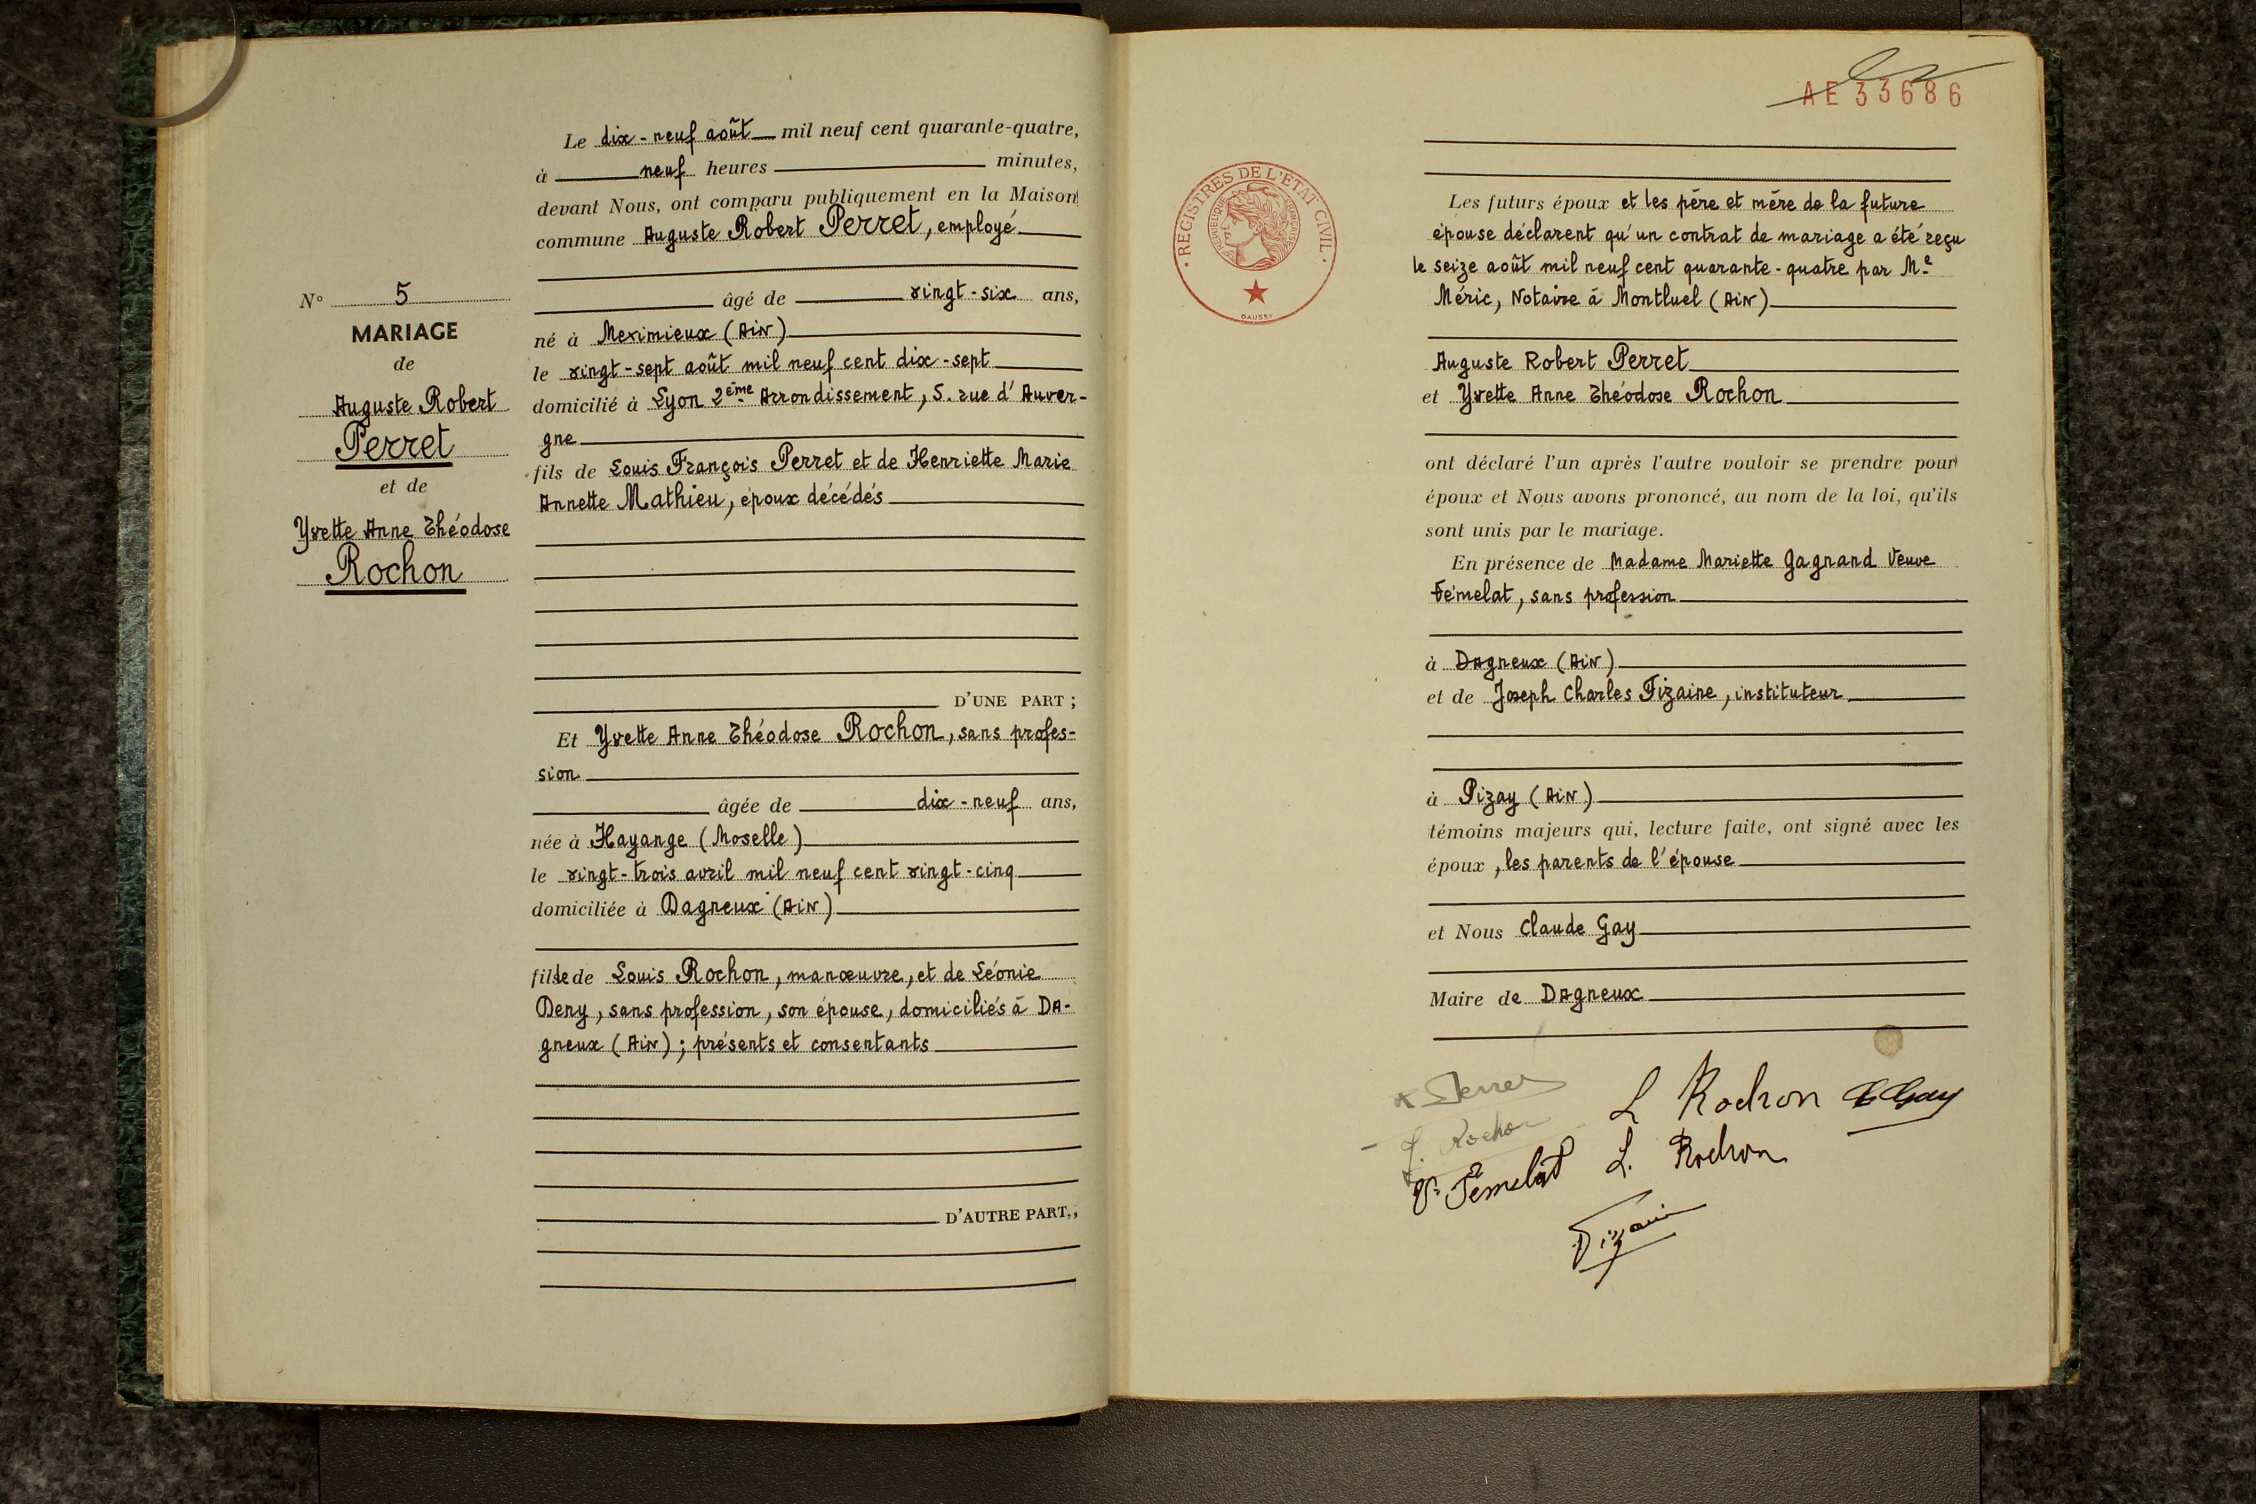 N° 5
MARIAGE
de
Auguste Robert
Perret
et de
Yvette Anne Théodose
Rochon
Le dix-neuf août mil neuf cent quarante-quatre,
à neuf heures minutes,
devant Nous, ont comparu publiquement en la Maison
commune Auguste Robert Perret, employé
âgé de vingt-six ans,
né à Meximieux (Ain)
le vingt-sept août mil neuf cent dix-sept
domicilié à Lyon 2ème Arrondissement, 5. rue d'Auver-
gne
fils de Louis François Perret et de Henriette Marie
Annette Mathieu, époux décédés
D'UNE PART ;
Et Yvette Anne Théodose Rochon, sans profes-
sion
âgée de dix-neuf ans,
née à Hayange (Moselle)
le vingt-trois avril mil neuf cent vingt-cinq
domiciliée à Dagneux (Ain)
fille de Louis Rochon, manœuvre, et de Léonie
Deny, sans profession, son épouse, domiciliés à Da-
gneux (Ain) ; présents et consentants
D'AUTRE PART,,
AE 33686
REGISTRES DE L'ETAT CIVIL
REPUBLIQUE FRANÇAISE
DAUSSY
Les futurs époux et les père et mère de la future
épouse déclarent qu'un contrat de mariage a été reçu
le seize août mil neuf cent quarante-quatre par Me
Méric, Notaire à Montluel (Ain)
Auguste Robert Perret
et Yvette Anne Théodose Rochon
ont déclaré l'un après l'autre vouloir se prendre pour
époux et Nous avons prononcé, au nom de la loi, qu'ils
sont unis par le mariage.
En présence de Madame Mariette Gagnand Veuve
Fémelat, sans profession
à Dagneux (Ain)
et de Joseph Charles Fizaine, instituteur
à Pizay (Ain)
témoins majeurs qui, lecture faite, ont signé avec les
époux, les parents de l'épouse
et Nous Claude Gay
Maire de Dagneux
Perret
L Rochon C Gay
Y. Rochon
Ve Fémelat L. Rochon
Fizaine